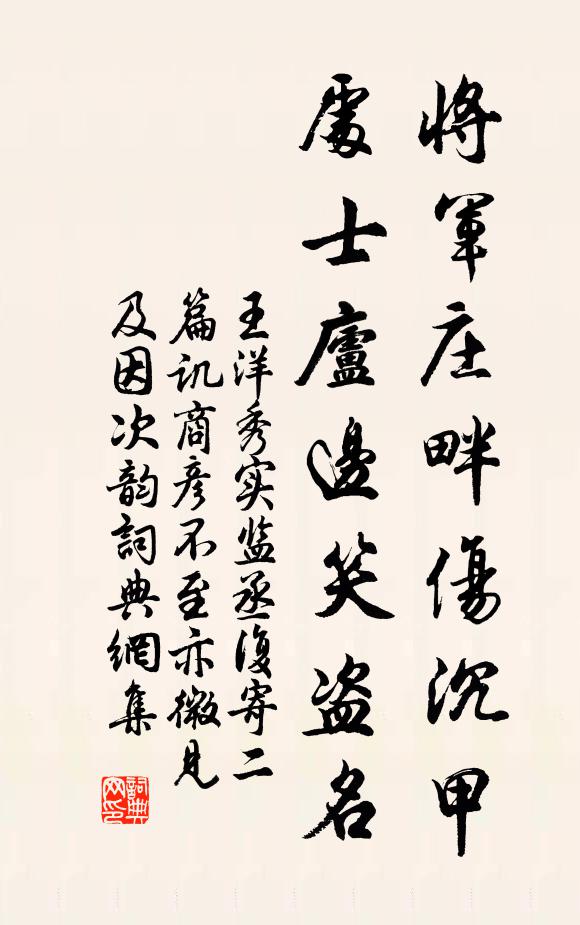 將軍庄畔傷沉甲
處士廬邊笑盗名
王洋秀实监丞復寄二
篇讥商彦不至亦微見
及因次韵詞典網集
詞典網印